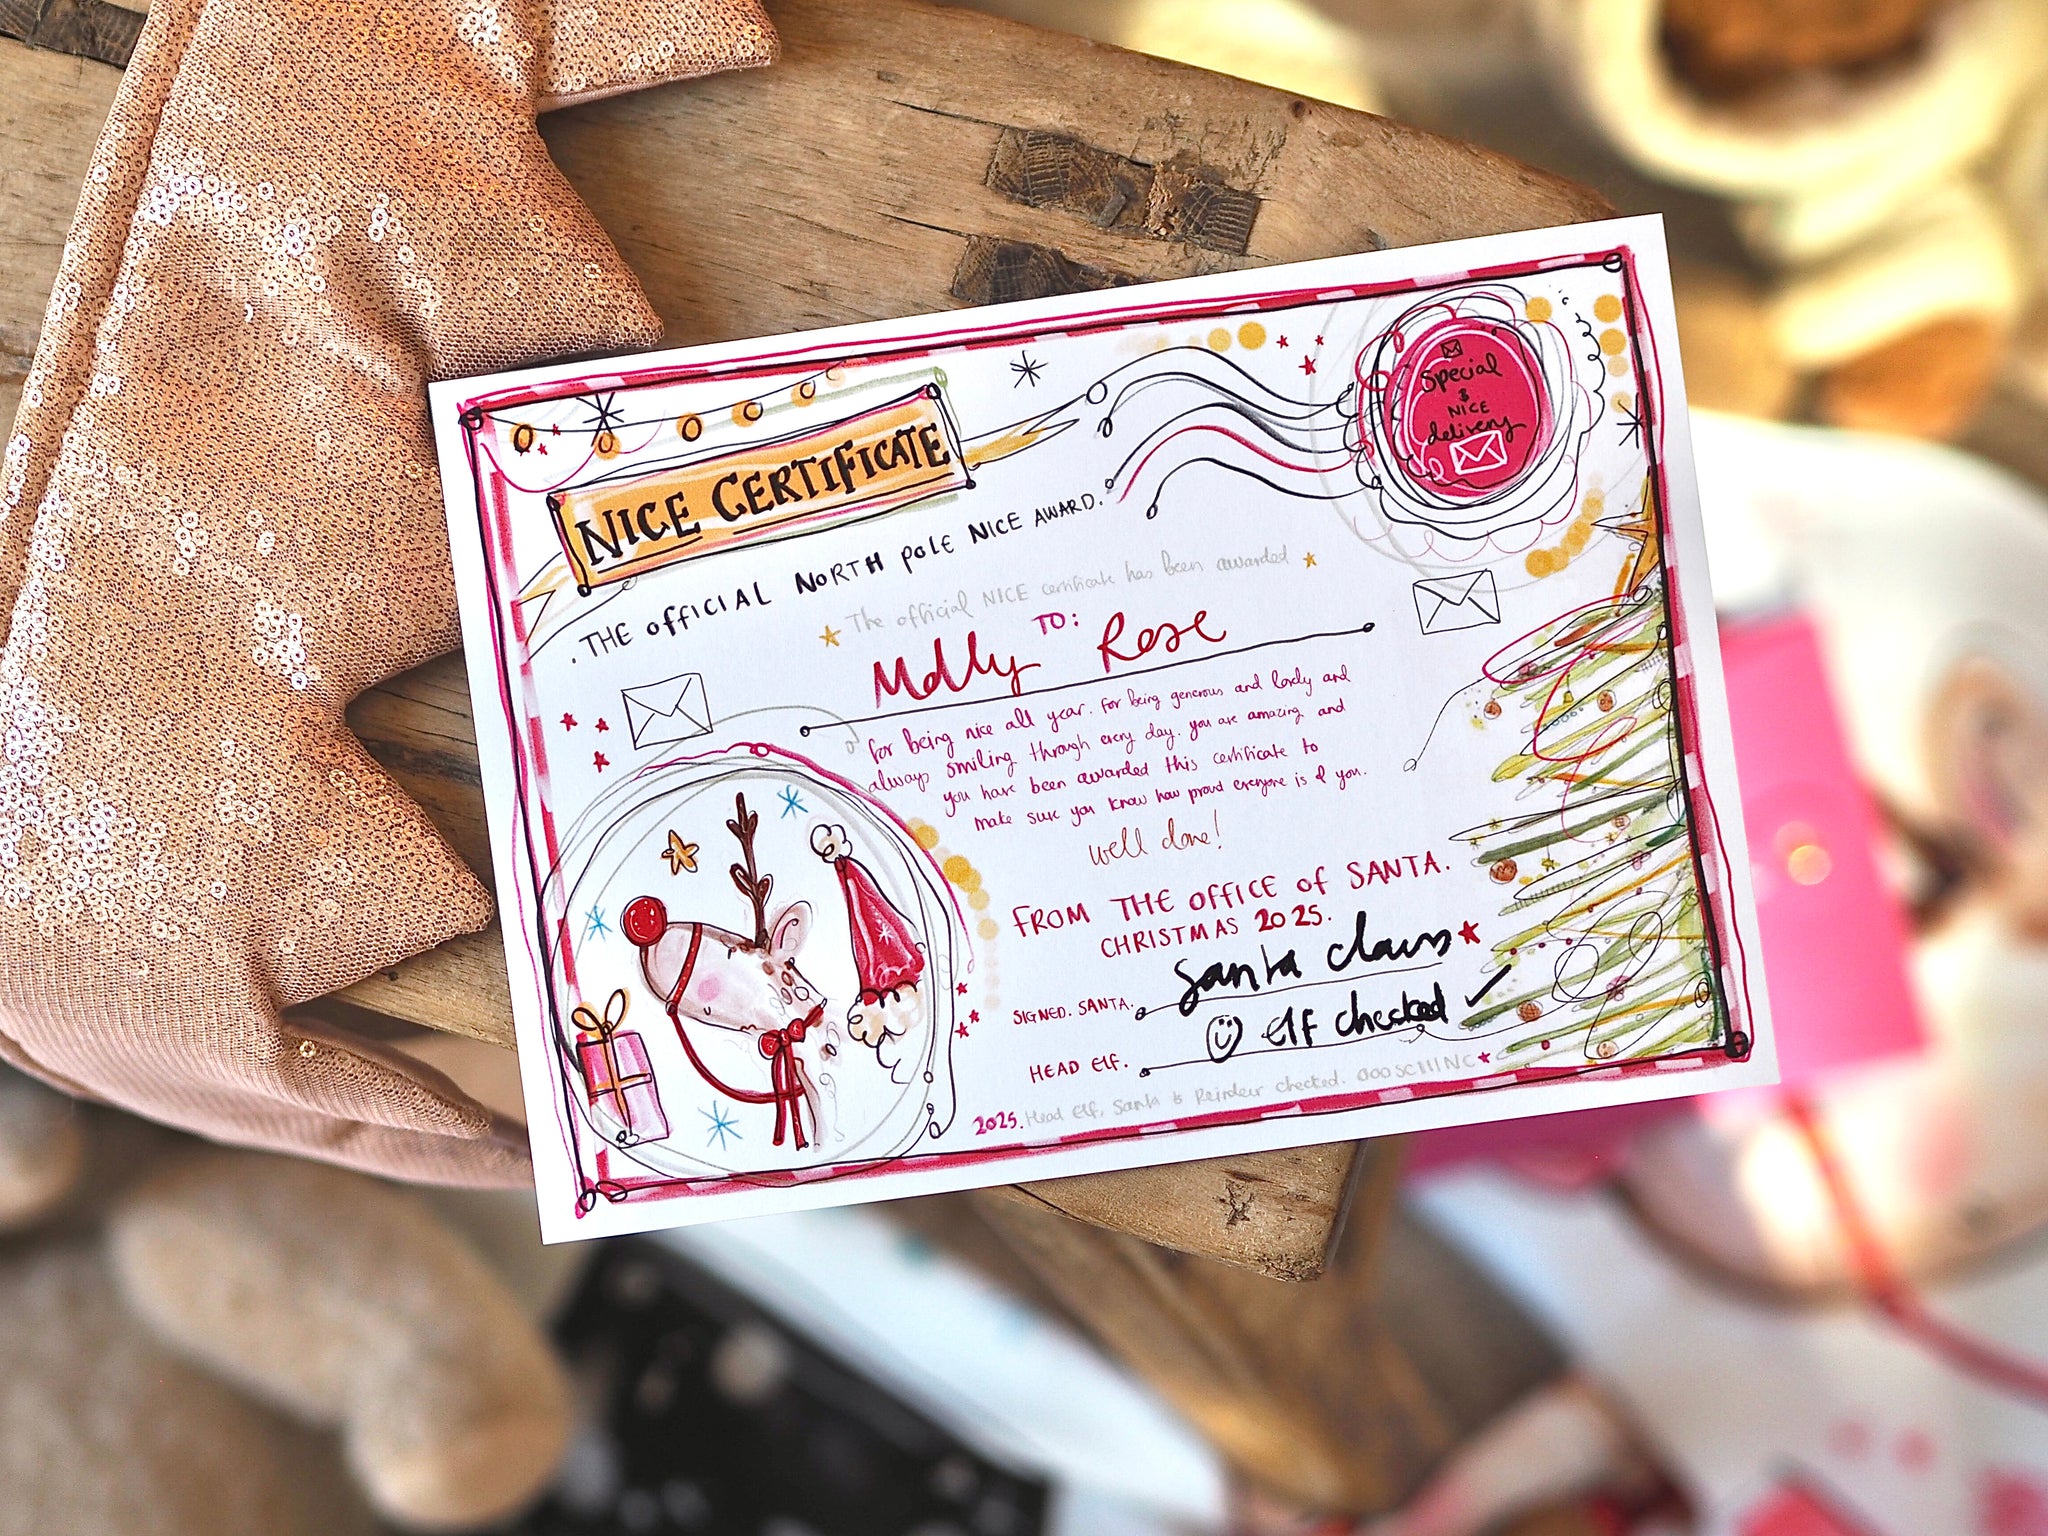 NICE CERTIFICATE
Special
& NICE
delivery
. THE OFFICIAL NORTH POLE NICE AWARD.
The official NICE certificate has been awarded
TO:
Molly Rose
for being nice all year. for being generous and lovely and
always smiling through every day. you are amazing and
you have been awarded this certificate to
make sure you know how proud everyone is of you.
well done!
FROM THE OFFICE OF SANTA.
CHRISTMAS 2025.
SIGNED. SANTA. Santa Claus
HEAD ELF. Elf checked
2025. Head Elf, Santa & Reindeer checked.